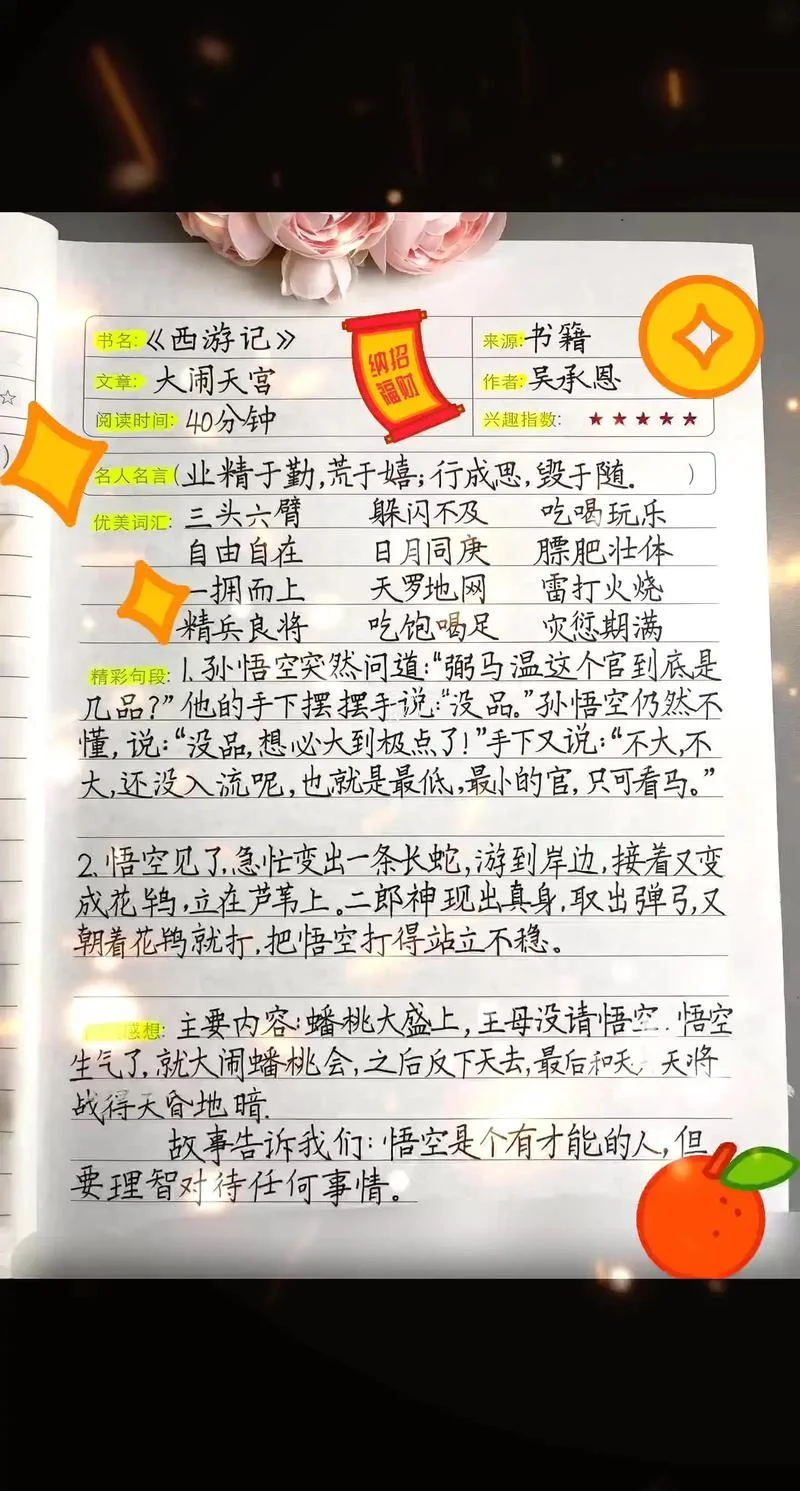 书名:《西游记》 来源:书籍
文章: 大闹天宫 作者:吴承恩
阅读时间: 40分钟 兴趣指数: ★★★★★
招财
纳福
名人名言(业精于勤,荒于嬉;行成思,毁于随。)
优美词汇: 三头六臂 躲闪不及 吃喝玩乐
自由自在 日月同庚 膘肥壮体
一拥而上 天罗地网 雷打火烧
精兵良将 吃饱喝足 灾愆期满
精彩句段: 1.孙悟空突然问道:“弼马温这个官到底是
几品?”他的手下摆摆手说:“没品。”孙悟空仍然不
懂,说:“没品,想必大到极点了!”手下又说:“不大,不
大,还没入流呢,也就是最低,最小的官,只可看马。”
2.悟空见了,急忙变出一条长蛇,游到岸边,接着又变
成花鸨,立在芦苇上。二郎神现出真身,取出弹弓,又
朝着花鸨就打,把悟空打得站立不稳。
感想: 主要内容:蟠桃大盛上,王母没请悟空.悟空
生气了,就大闹蟠桃会,之后反下天去,最后和天 天将
战得天昏地暗.
故事告诉我们:悟空是个有才能的人,但
要理智对待任何事情。